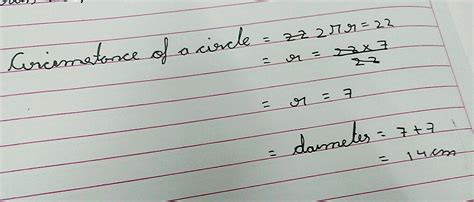 Circumetance of a circle = 2πr = 22
= r = 22 × 7 / 22
= r = 7
= daimeter = 7+7
= 14 cm